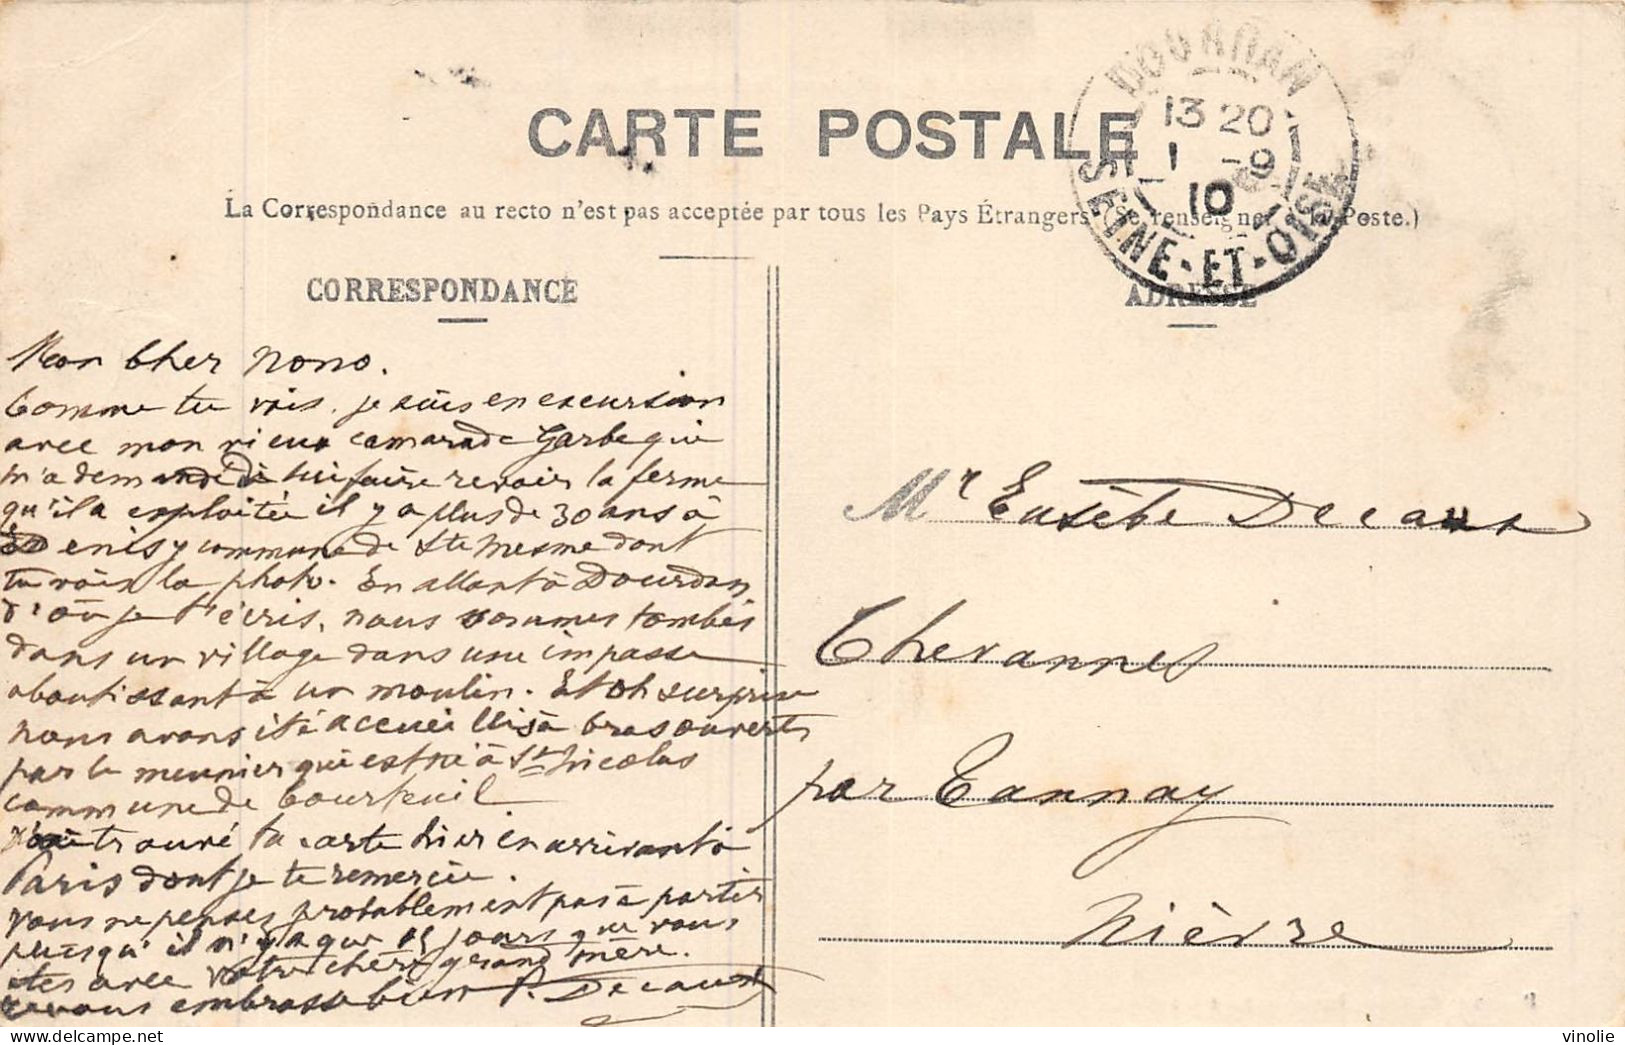 CARTE POSTALE
La Correspondance au recto n'est pas acceptée par tous les Pays Étrangers (Se renseigner à la Poste.)
DOURDAN
13 20
1 -9
10
SEINE-ET-OISE
CORRESPONDANCE
Mon Cher Nono.
Comme tu vois, je suis en excursion
avec mon vieux camarade Garbe qui
m'a demandé de lui faire revoir la ferme
qu'il a exploitée il y a plus de 30 ans à
Denisy commune de Ste Mesme dont
tu vois la photo. En allant à Dourdan
d'où je t'écris, nous sommes tombés
dans un village dans une impasse
aboutissant à un moulin. Et oh surprise
nous avons été accueillis à bras ouverts
par le meunier qui est né à St Nicolas
commune de Courteuil
J'ai trouvé ta carte hier en arrivant à
Paris dont je te remercie.
Vous ne pensez probablement pas à partir
puisqu'il n'y a que 15 jours que vous
êtes avec votre chère grand mère.
vous embrasse bien P. Decaux
ADRESSE
Mr Eusèbe Decaux
Chevannes
par Tannay
Nièvre
vinolie